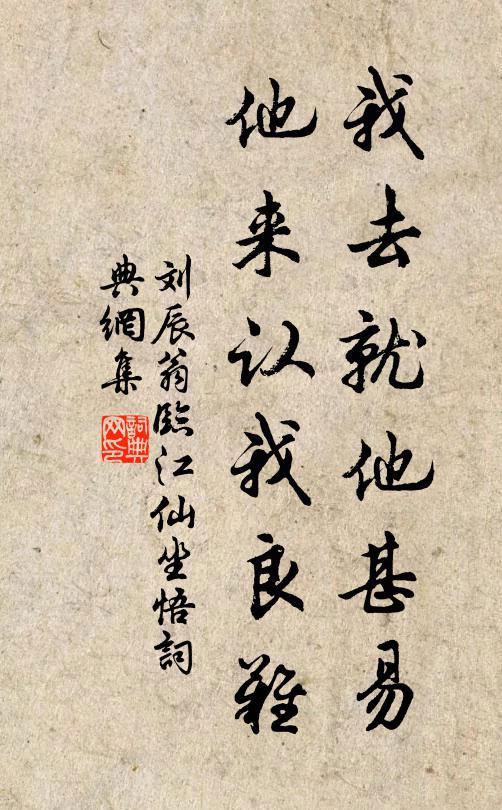 我去就他甚易
他来认我良難
刘辰翁臨江仙坐悟詞
典網集
詞典
网印